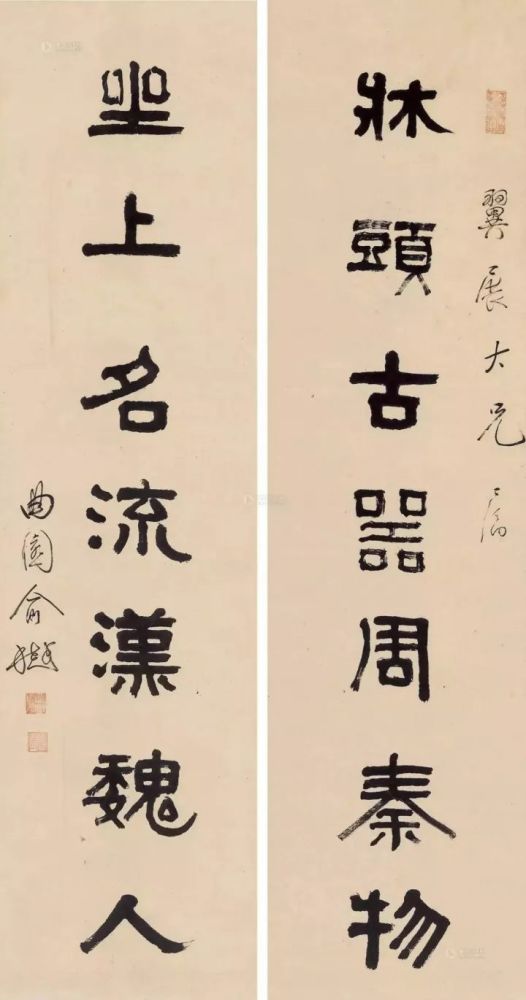 翼展大兄属
牀頭古器周秦物
坐上名流漢魏人
曲園俞樾